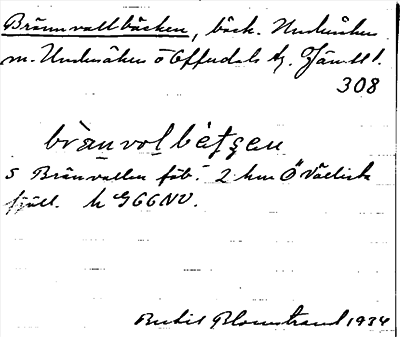 Brännvallbäcken, bäck. Undersåker
m. Undersåkers o Offerdals tg. Jämtl l.
308
brànvolbètʃen
S Brännvallen fäb. 2 km Ö Välliste
fjäll. h G66NV.
Bertil Blomstrand 1934